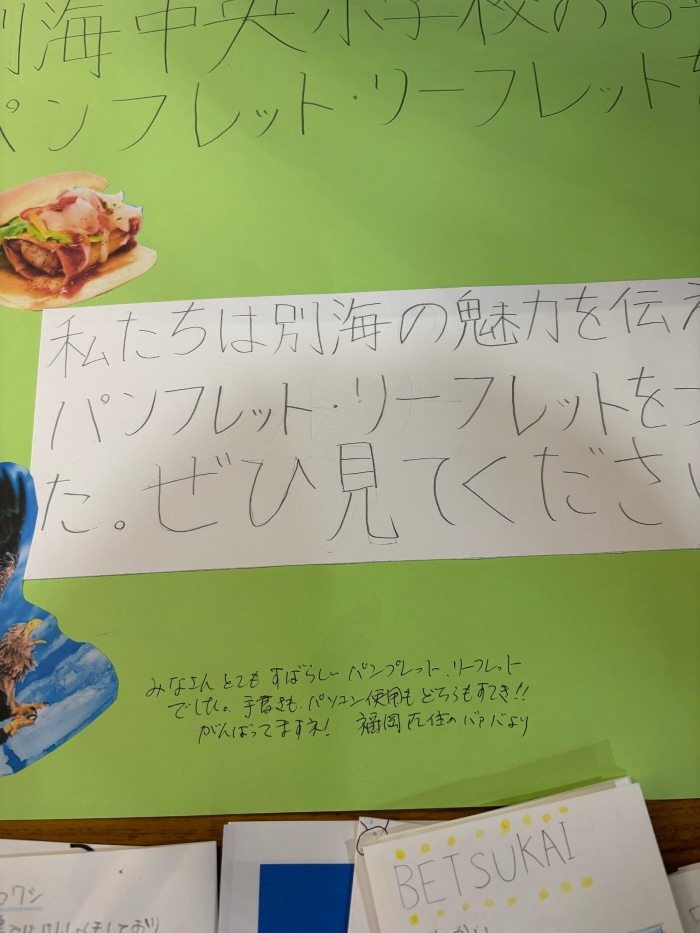 別海中央小学校の6
パンフレット・リーフレット
私たちは別海の魅力を伝え
パンフレット・リーフレットをつ
た。ぜひ見てくださ
みなさんとてもすばらしいパンプレット、リーフレット
でした。手書きも、パソコン使用もどちらもすてき!!
がんばってますネ! 福岡在住のバァバより
BETSUKAI